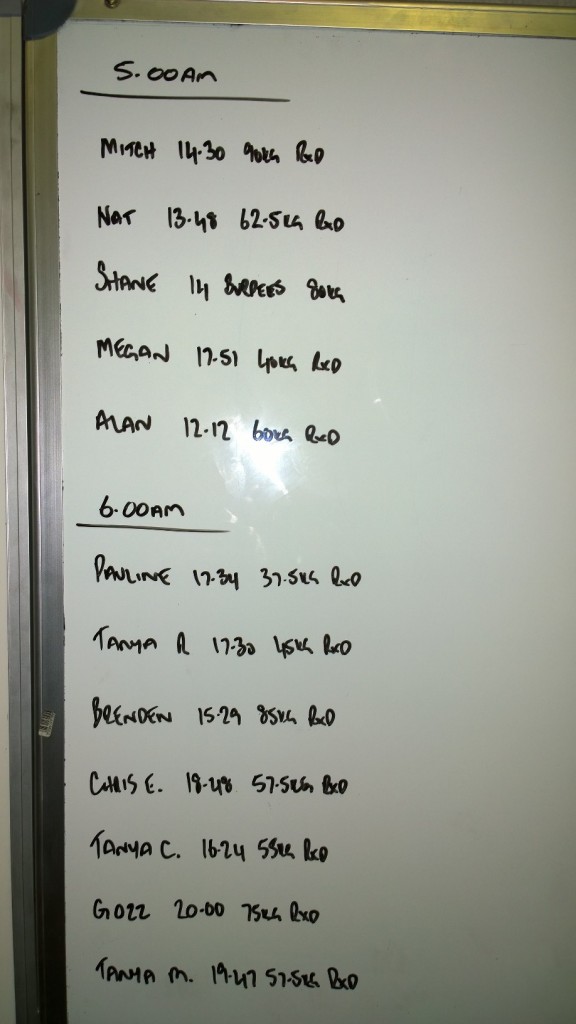 5.00AM
MITCH 14.30 90KG RxD
NAT 13.48 62.5KG RxD
SHANE 14 BURPEES 80KG
MEGAN 17.51 40KG RxD
ALAN 12.12 60KG RxD
6.00AM
PAULINE 17.34 37.5KG RxD
TANYA R 17.30 45KG RxD
BRENDEN 15.29 85KG RxD
CHRIS E. 18.48 57.5KG RxD
TANYA C. 16.24 55KG RxD
GOZZ 20.00 75KG RxD
TANYA M. 19.47 57.5KG RxD